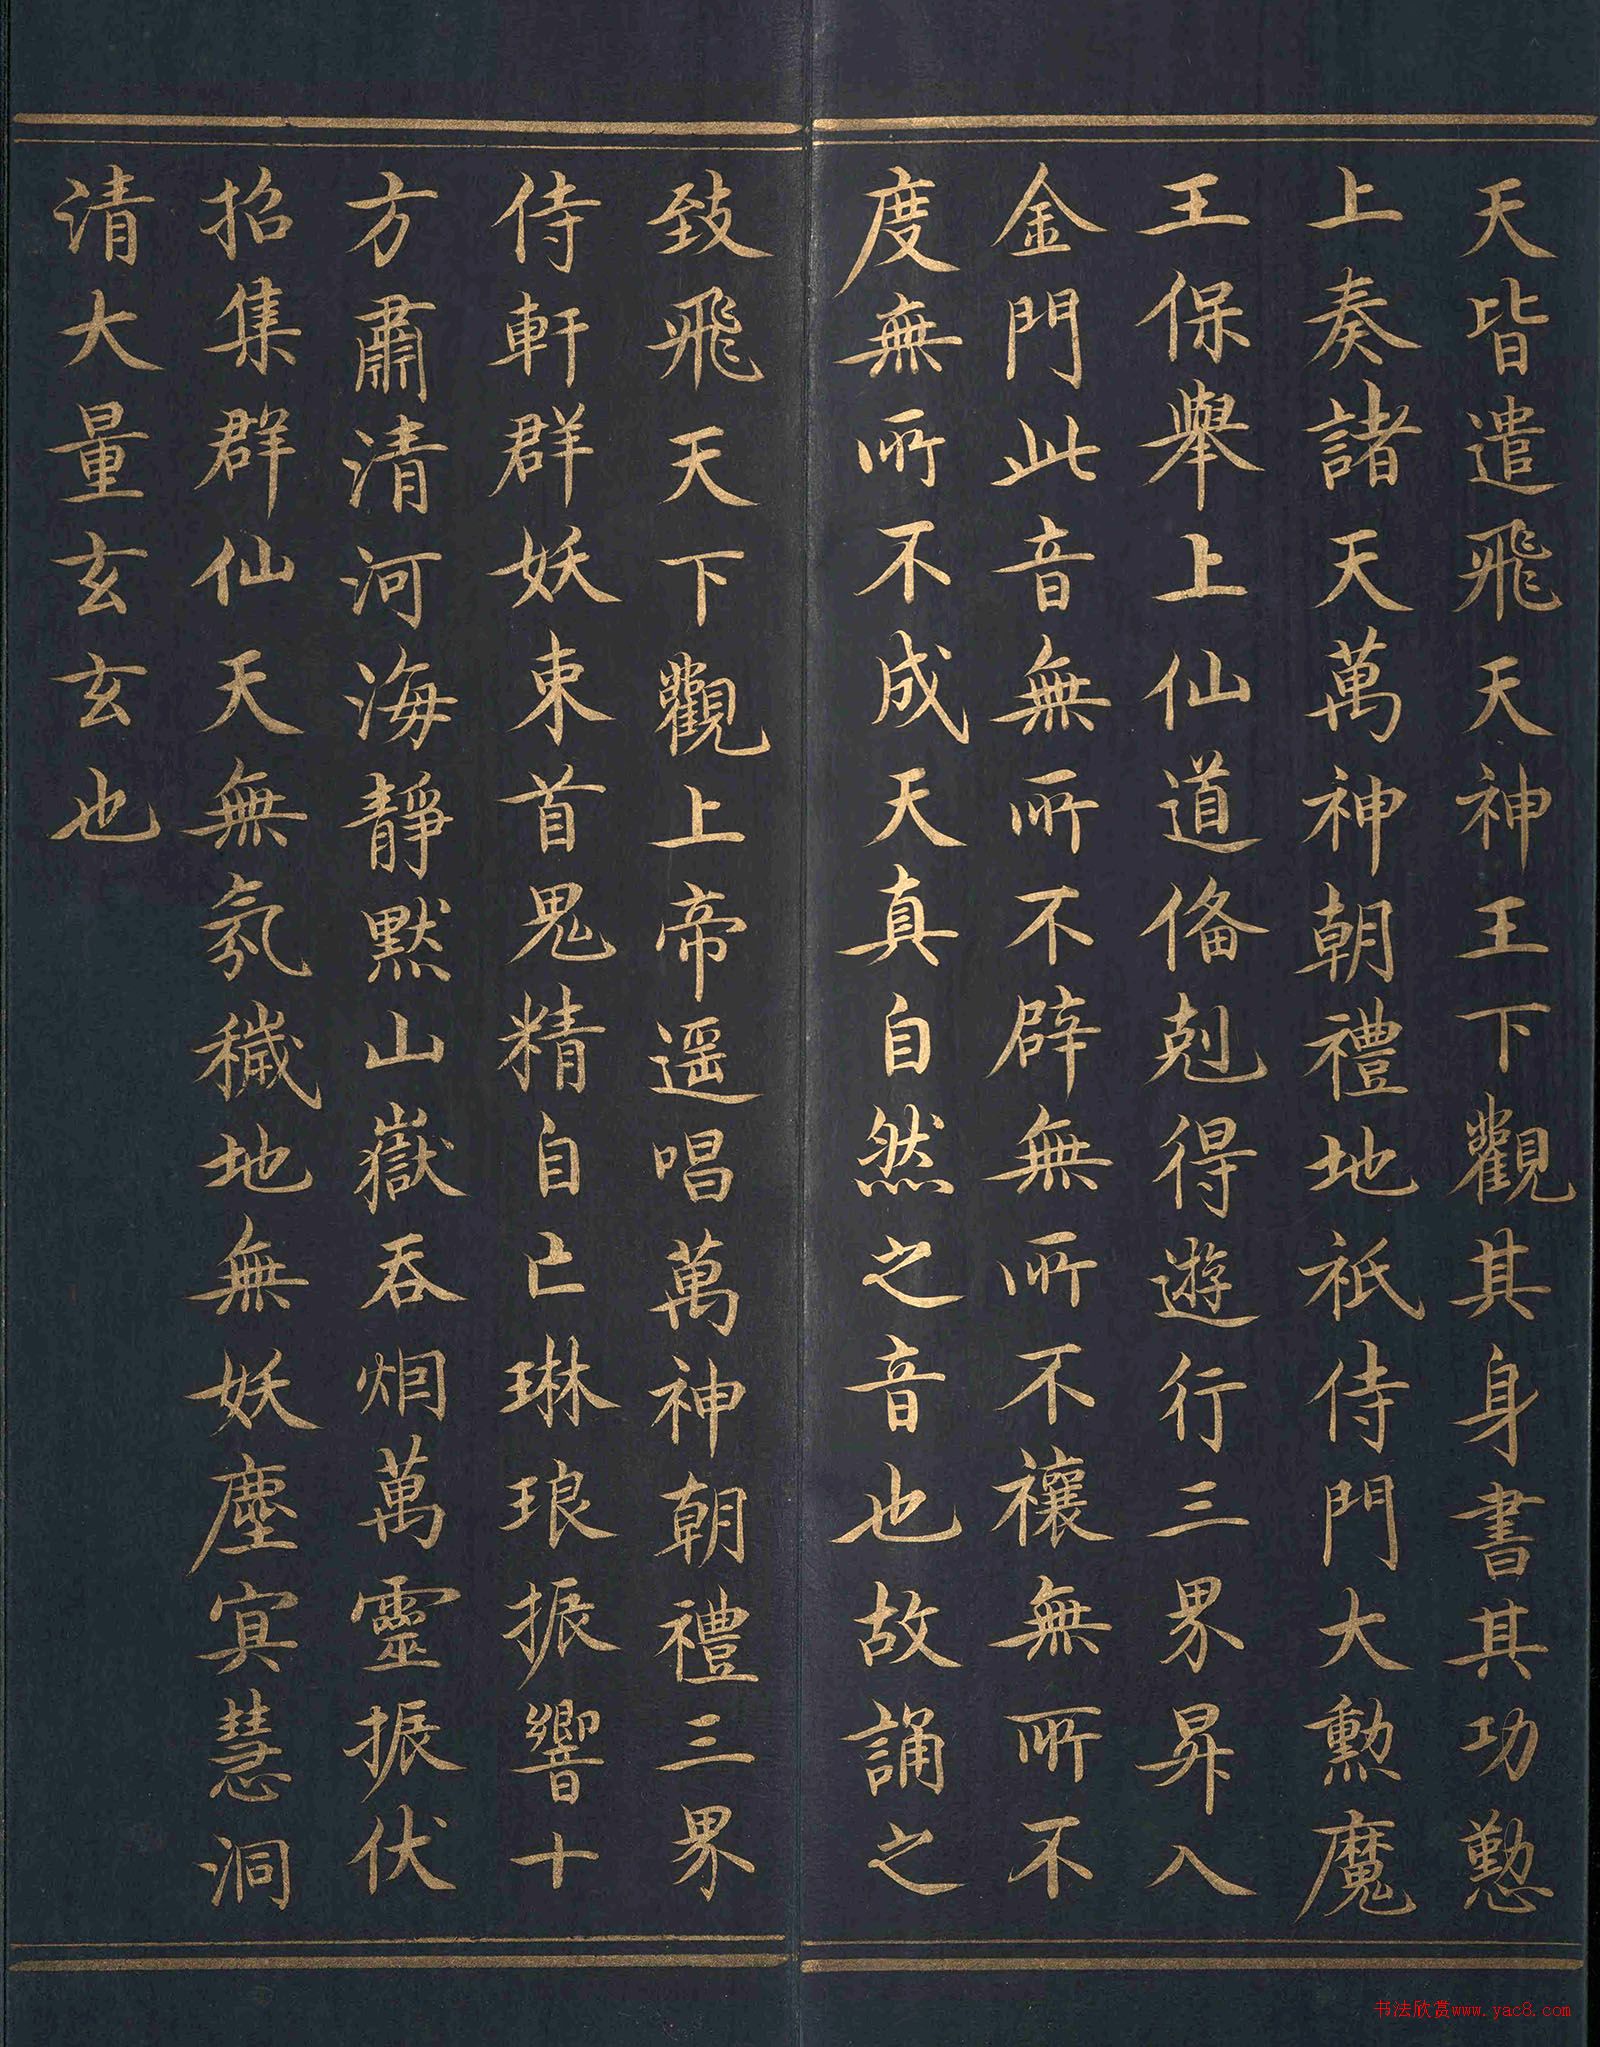 天皆遣飛天神王下觀其身書其功懃
上奏諸天萬神朝禮地祇侍門大勲魔
王保舉上仙道俻剋得遊行三界昇入
金門此音無所不辟無所不禳無所不
度無所不成天真自然之音也故誦之
致飛天下觀上帝遥唱萬神朝禮三界
侍軒群妖束首鬼精自亡琳琅振響十
方肅清河海靜默山嶽吞烟萬靈振伏
招集群仙天無氛穢地無妖塵㝠慧洞
清大量玄玄也
书法欣赏www.yac8.com